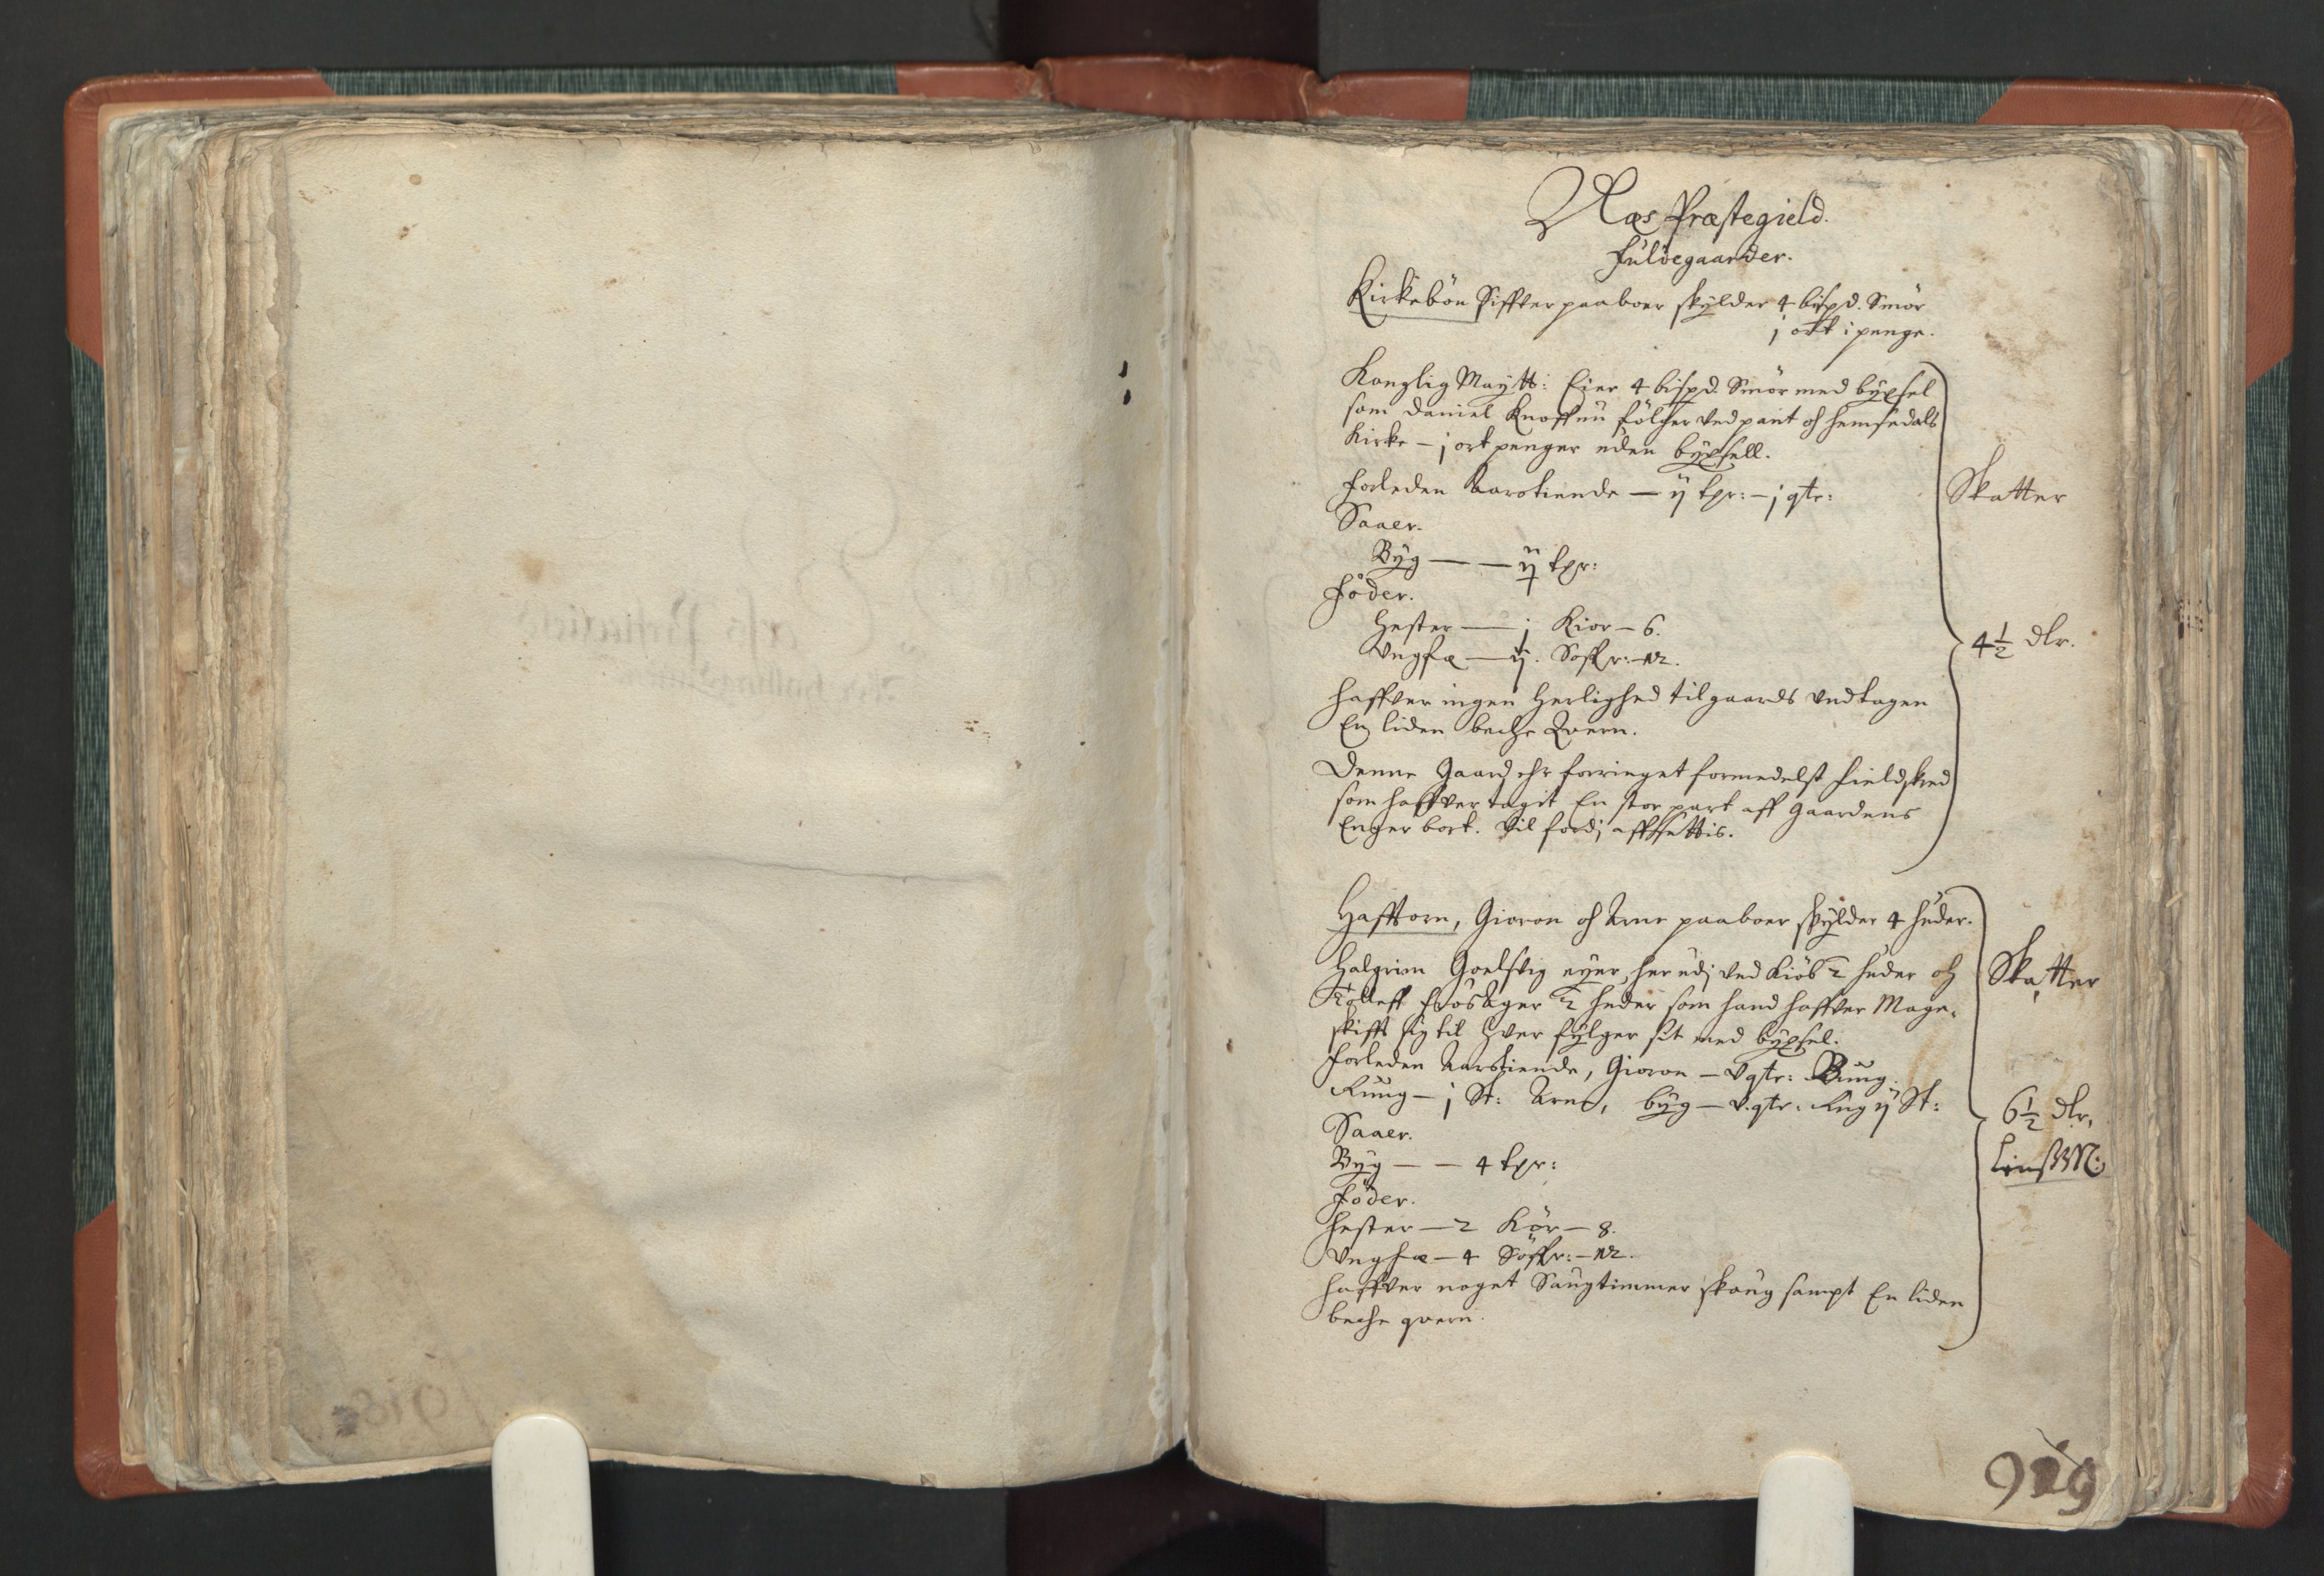 Næs Præstegield.
Fuldegaarder.
Kirkebön Siffver paaboer skylder 4 bispd. Smör
j ort i penge.
Konglig Maytt: Eier 4 bispd. Smör med bÿxsel
som Daniel Knoff nu fölger ved pant och Hemsedals
Kirke – j ort penger uden bÿxsell.
Forleden Aarstiende – ij tpr: – j qtr:
Saaer.
Byg — — ij tpr:
Föder.
Hester — j Kior – 6.
Ungfæ — ij. Soffr: – 12.
Haffver ingen Herlighed til gaards undtagen
En liden beche Qvern.
Denne Gaard ehr forringet formedelst Fieldskred
som haffver tagit En stor part aff Gaardens
Enger bort. Vil fordj affsettis.
Skatter
4 1/2 dlr.
Hafftorn, Gioron och Arne paaboer skÿlder 4 huder.
Halgrim Goelsvig eyer her udj ved Kiöb 2 huder och
Tolleff 2 huder som hand haffver Mage-
skifft sig til hver fÿlger sit med bÿxsel.
Forleden Aarstiende, Gioron – v qtr: Bÿug
Rüug – j St: Arne, bÿg – v. qtr. Rug ij St:
Saaer.
Bÿg — — 4 tpr:
Föder.
Hester – 2 Kör – 8.
Ungfæ – 4 Söffr: – 12.
Haffver noget Saugtimmer skoug sampt En liden
beche qvern.
Skatter
6 1/2 dlr.
919
918